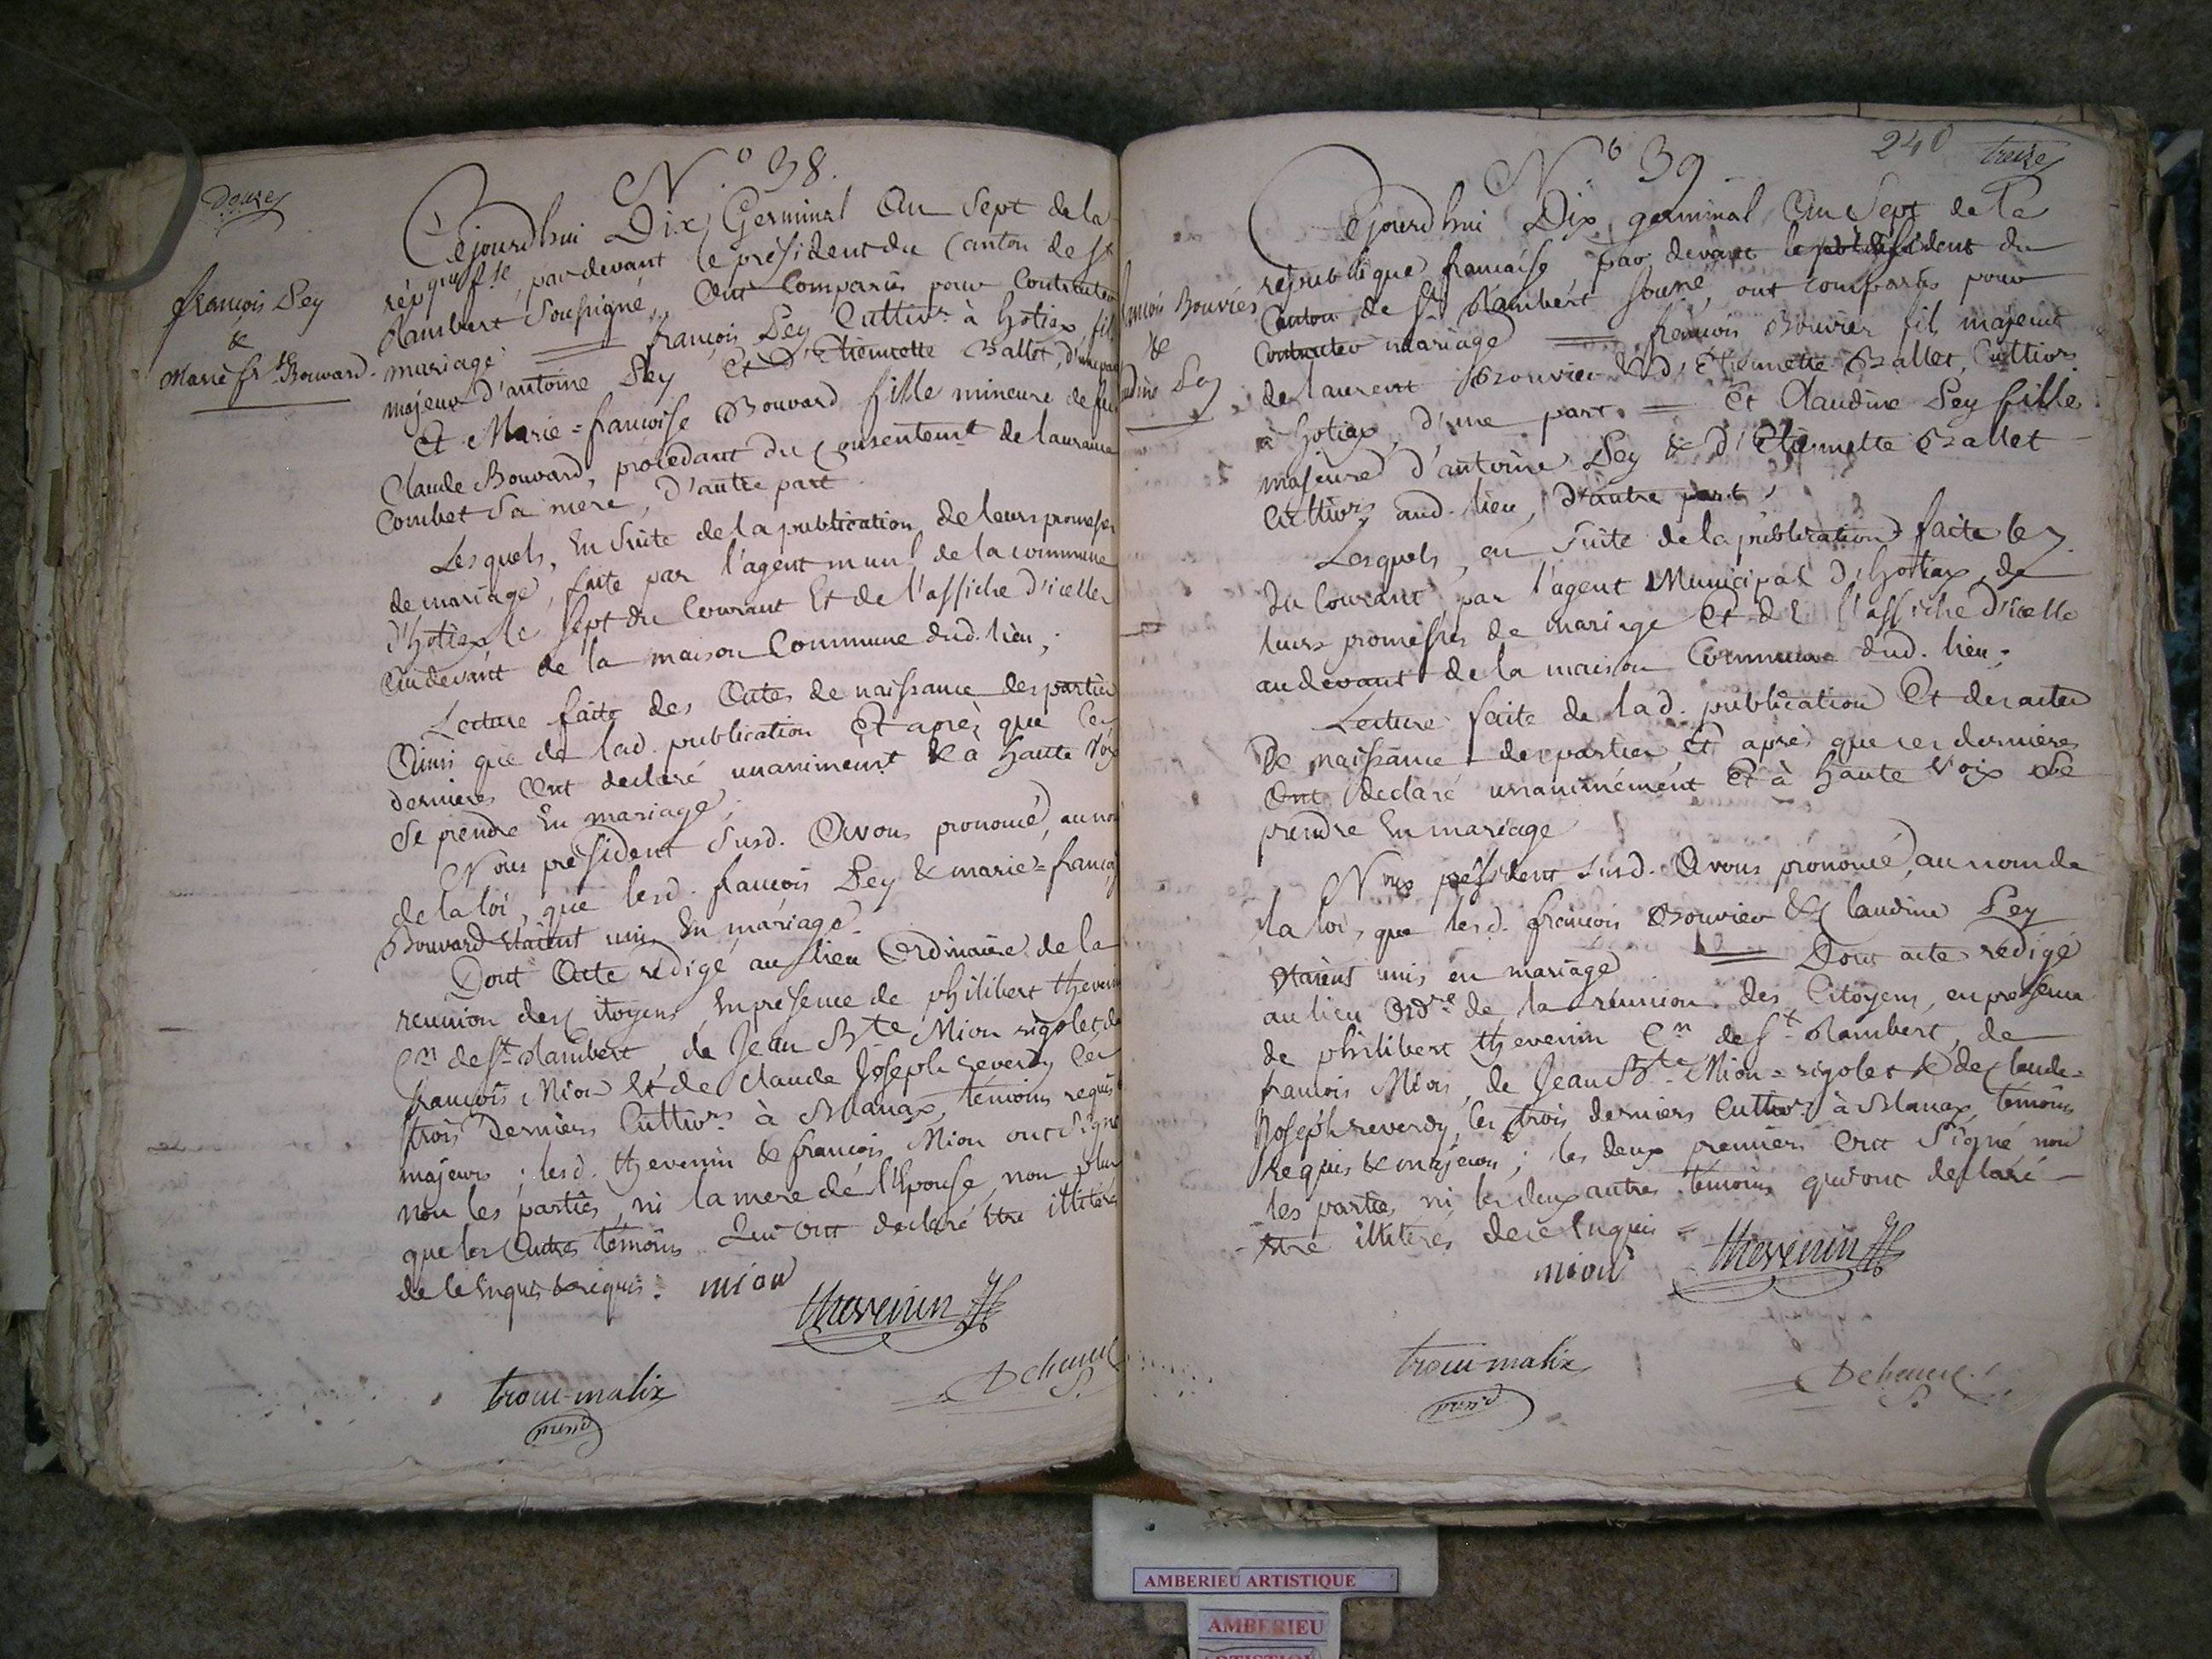 Douze
N.º 38.
françois Ley
&
Marie fr.se Bouvard.
Cejourdhui Dix Germinal an Sept de la
répque fse, pardevant le président du Canton de St
Rambert Soussigné, Ont Comparus pour Contracter
mariage = françois Ley Cultivr. à hotiax fils
majeur d'antoine Ley et d'Etiennette Ballet, d'une part
Et Marie=françoise Bouvard fille mineure de feu
Claude Bouvard, procédant du Consentemt. de
Combet Sa mere, d'autre part.
Lesquels, En Suite de la publication de leurs promesses
de mariage, faite par l'agent munl. de la commune
d'hotiax le Sept du Courant Et de l'affiche d'icelles
Audevant de la maison Commune dud. lieu;
Lecture faite des Actes de naissance des parties
Ainsi que de lad. publication Et après que Ces
dernieres Ont declaré unanimemt. & a haute Voix
Se prendre En mariage;
Nous président Susd. Avons prononcé, au nom
de la loi, que lesd. françois Ley & marie=françoise
Bouvard étaient unis En mariage.
Dont Acte rédigé au lieu Ordinaire de la
reunion des Citoyens, En présence de philibert thevenin
Cn de St. Rambert, de Jean Bte Mion rigolet, de
françois Mion Et de Claude Joseph reverdy Ces
trois Derniers Cultivrs. à Blanax, témoins requis
majeurs; lesd. thevenin & françois Mion ont Signé
non les parties, ni la mere de l'Epouse, non plus
que les Autres témoins Qui ont declaré Etre illitérés
de ce Enquis & requis. mion
thevenin
troui-malix
présid
Dchanel
240 treize
Nº 39
françois Bouvier
&
Claudine Ley
Cejourdhui Dix germinal an Sept de la
republique francaise, par devant le président du
Canton de St. Rambert Sousné, ont comparus pour
Contracter mariage = françois Bouvier fil majeur
de laurent Bouvier & d'Etiennette Ballet, Cultivrs.
à hotiax, d'une part. = Et Claudine Ley fille
majeure d'antoine Ley & d'Etiennette Ballet
Cultivrs. aud. lieu, d'autre part;
Lesquels, en Suite de la publication faite le 7.
du Courant par l'agent Municipal d'hotiax, de
leurs promesses de mariage Et de l'affiche d'icelle
au devant de la maison Commune dud. lieu;
Lecture faite de lad. publication Et des actes
De naissance des parties, Et après que ces dernieres
Ont declaré unanimément Et à haute Voix Se
prendre En mariage
Nous président Susd. Avons prononcé, au nom de
la loi, que lesd. françois Bouvier & Claudine Ley
étaient unis en mariage = Dont acte rédigé
au lieu Ordre de la réunion des Citoyens, en présence
de philibert thevenin Cn de St. Rambert, de
françois Mion, de Jean Bte Mion=rigolet & de Claude=
Joseph reverdy, les trois derniers Cultivrs. à Blanax, témoins
requis & majeurs; les deux premiers Ont Signé non
les parties ni les deux autres témoins qui ont declaré
être illitérés de ce Enquis =
mion thevenin
troui-malix
présid
Dchanel
AMBERIEU ARTISTIQUE
AMBERIEU
ARTISTIQUE